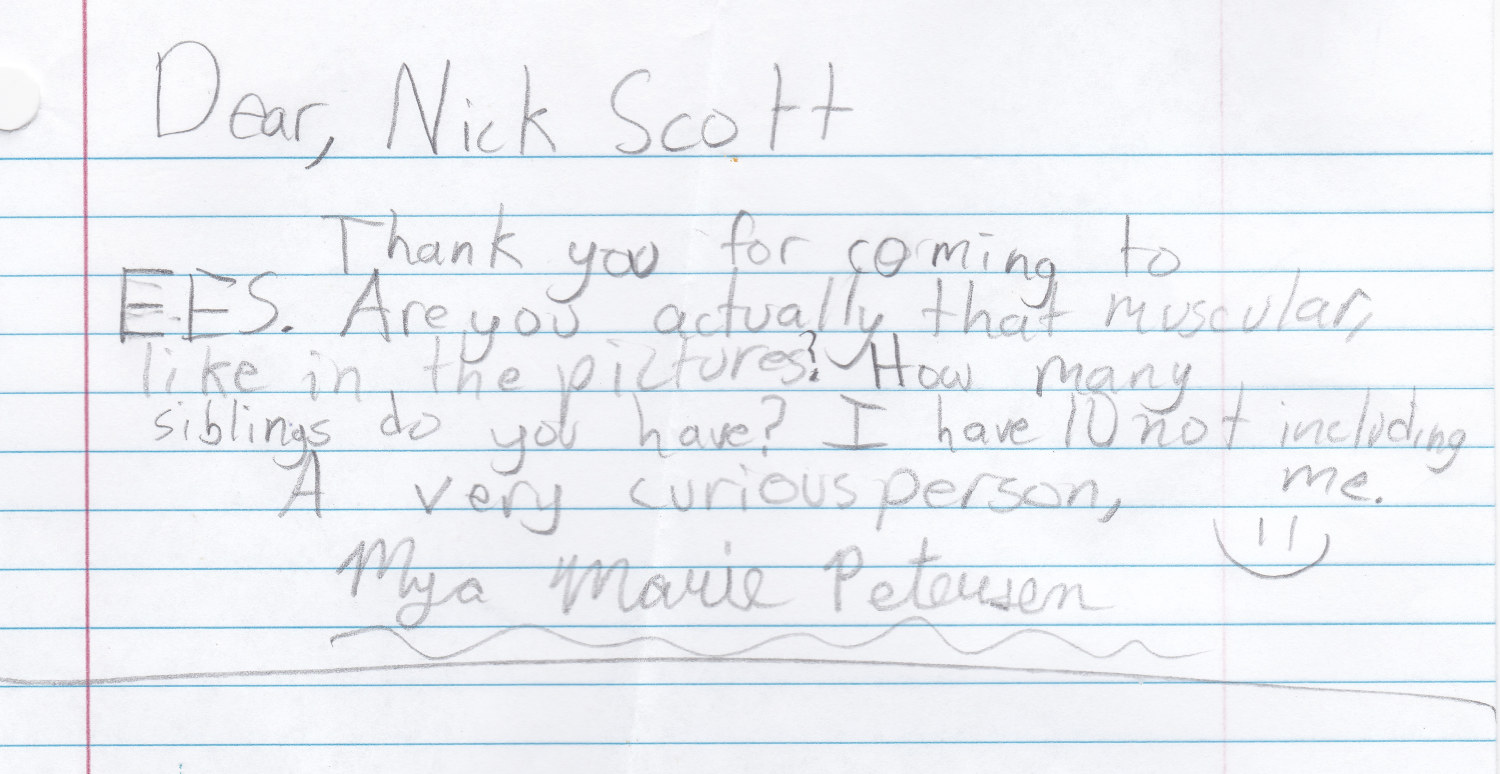 Dear, Nick Scott
Thank you for coming to
EES. Are you actually that muscular,
like in the pictures? How many
siblings do you have? I have 10 not including
me.
A very curious person,
Mya Marie Petersen